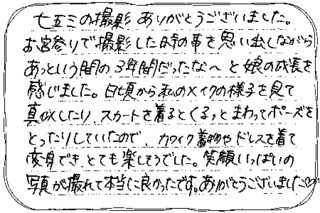 七五三の撮影 ありがとうございました。
お宮参りで撮影した時の事を思い出しながら
あっという間の3年間だったな〜と娘の成長を
感じました。日頃から私のメイクの様子を見て
真似したり、スカートを着るとくるっとまわってポーズを
とったりしていたので、カワイイ着物やドレスを着て
変身でき、とても楽しそうでした。笑顔いっぱいの
写真が撮れて本当に良かったです。ありがとうございました